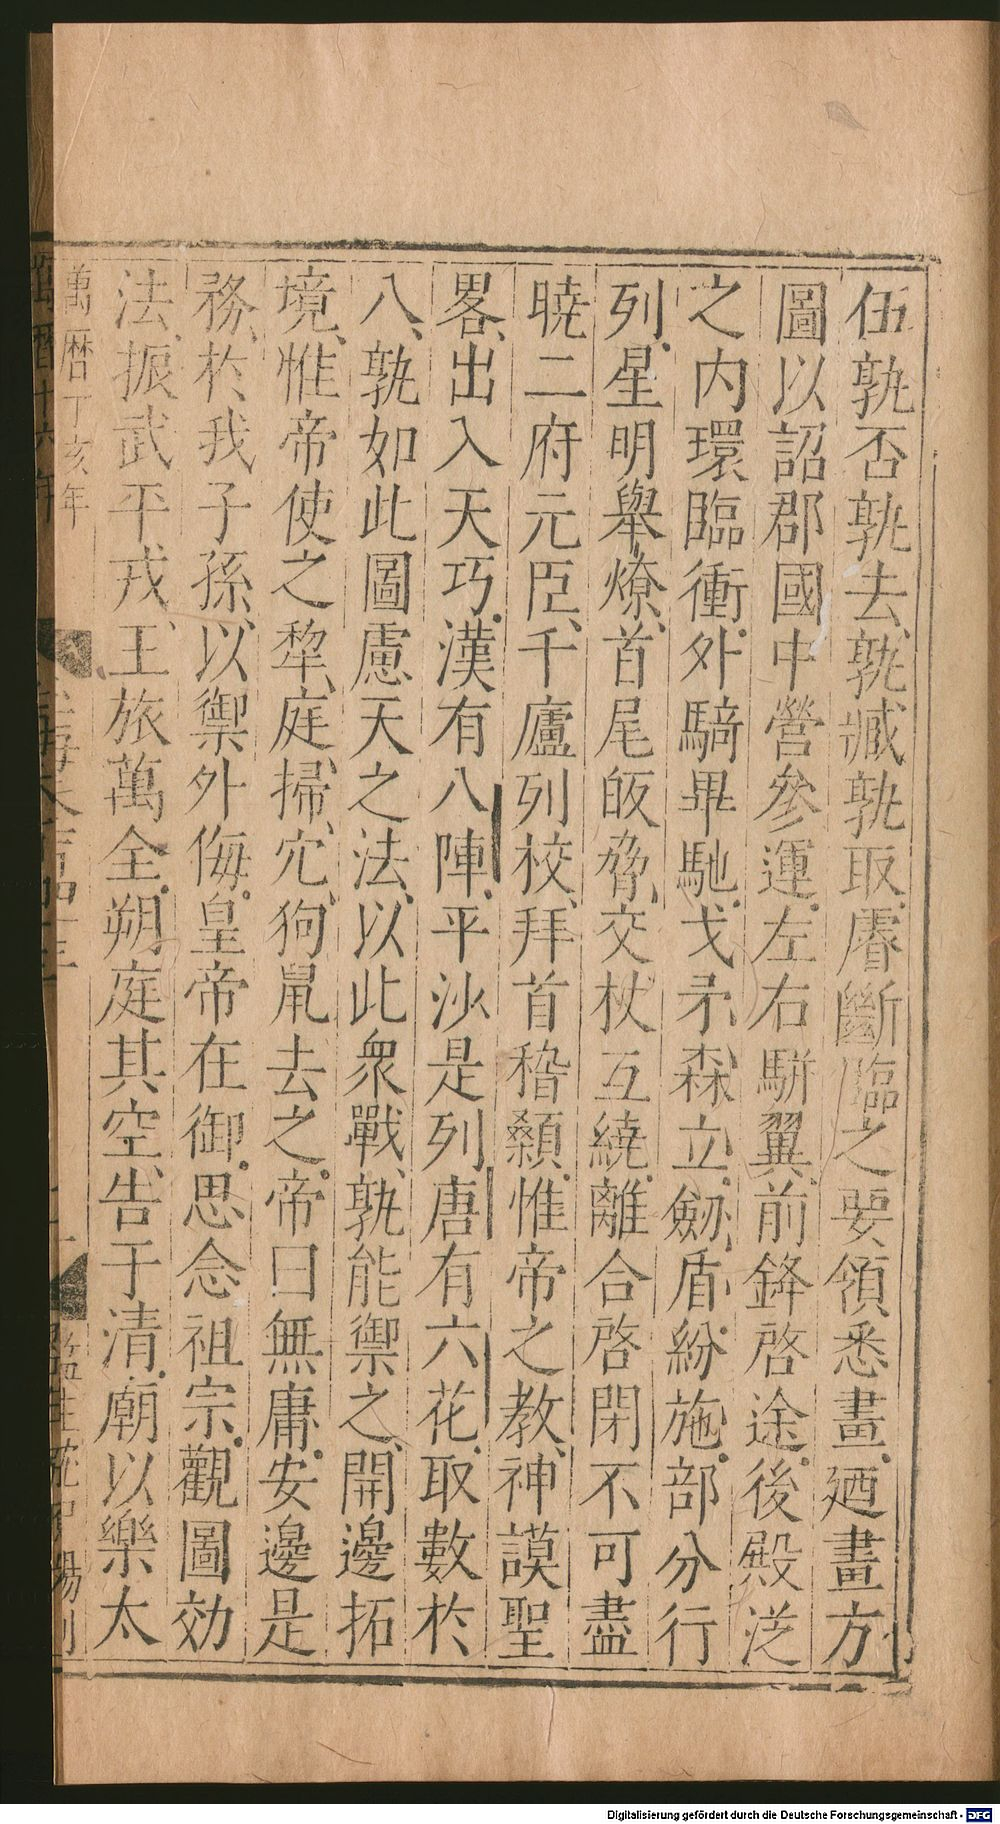 伍孰否孰去孰臧孰取睿斷臨之要領悉畫廼畫方
圖以詔郡國中營參運左右駢翼前鋒啓途後殿迄
之内環臨衝外騎畢馳戈矛森立劔盾紛施部分行
列星明舉燎首尾皈脅交杖互繞離合啓閉不可盡
曉二府元臣千廬列校拜首稽顙惟帝之教神謨聖
畧出入天巧漢有八陣平沙是列唐有六花取數於
八孰如此圖慮天之法以此衆戰孰能禦之開邊拓
境惟帝使之犂庭掃穴狗鼠去之帝曰無庸安邊是
務於我子孫以禦外侮皇帝在御思念祖宗觀圖効
法振武平戎王旅萬全朔庭其空告于清廟以樂太
萬曆丁亥年
萬曆十六年
Digitalisierung gefördert durch die Deutsche Forschungsgemeinschaft - DFG